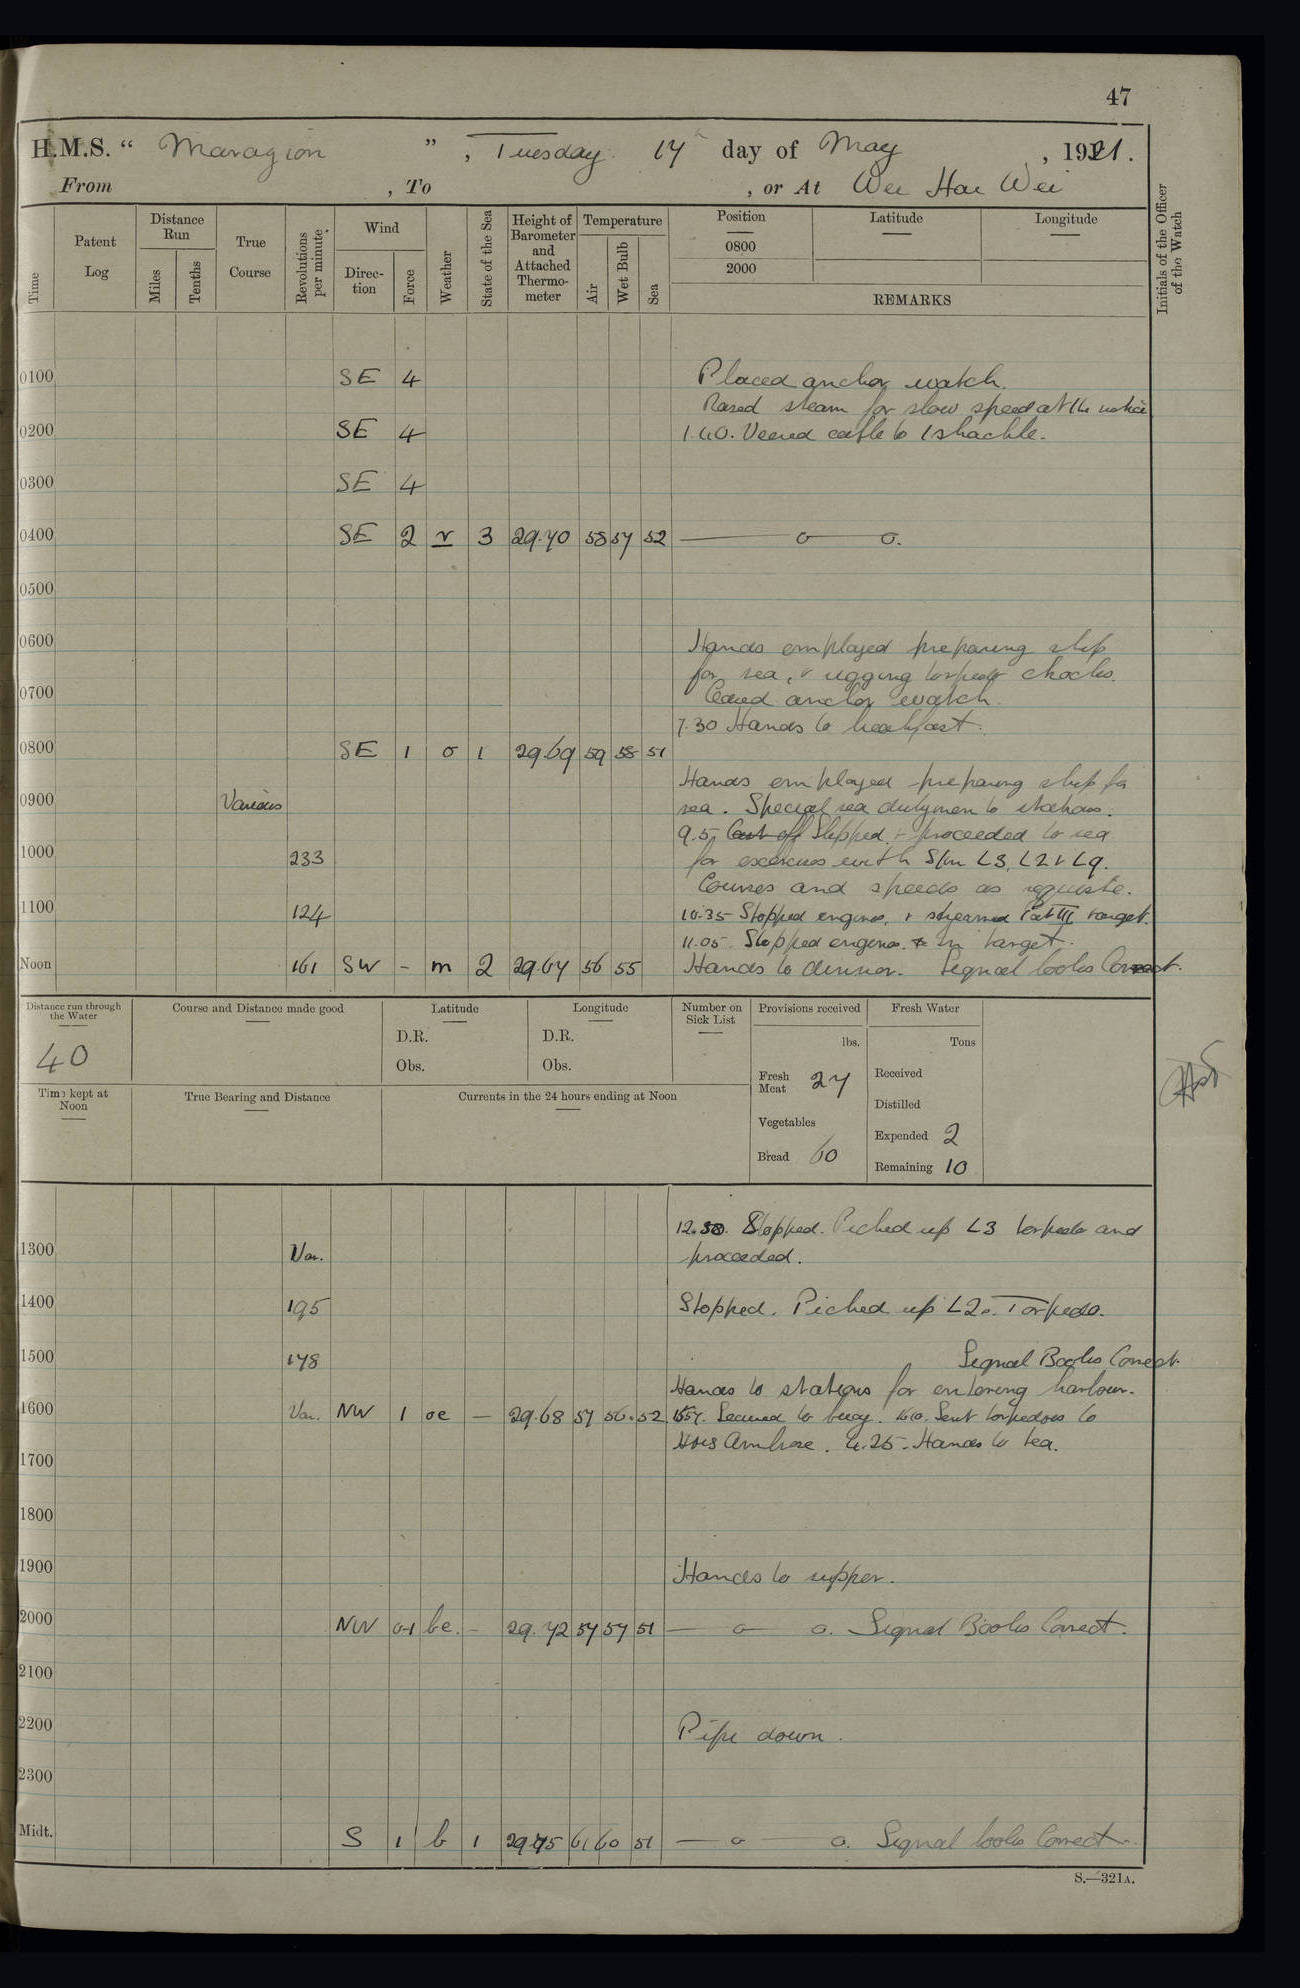 47
H.M.S. “ Marazion ” , Tuesday 17th day of May , 1921.
From , To , or At Wei Hai Wei
Time
Patent Log
Distance Run
Miles
Tenths
True Course
Revolutions per minute
Wind
Direction
Force
Weather
State of the Sea
Height of Barometer and Attached Thermometer
Temperature
Air
Wet Bulb
Sea
Position
0800
2000
Latitude
Longitude
REMARKS
Initials of the Officer of the Watch
0100 SE 4 Placed anchor watch.
Raised steam for slow speed at 1 hr notice
0200 SE 4 1.40. Veered cable to 1 shackle.
0300 SE 4
0400 SE 2 r 3 29.70 58 57 52 — o — o.
0500
0600 Hands employed preparing ship
for sea, & rigging torpedo chocks.
0700 Ceased anchor watch.
7.30 Hands to breakfast.
0800 SE 1 o 1 29.69 59 58 51
Hands employed preparing ship for
0900 Various sea. Special sea dutymen to stations.
9.5 Cast off Slipped & proceeded to sea
1000 233 for exercises with S/m L3, L2 & L9.
Courses and speeds as requisite.
1100 124 10.35 Stopped engines, & streamed Patt III target.
11.05 Stopped engines. & In target.
Noon 161 SW - m 2 29.67 56 55 Hands to dinner. Signal books Correct.
Distance run through the Water
40
Course and Distance made good
Latitude
D.R.
Obs.
Longitude
D.R.
Obs.
Number on Sick List
Provisions received
lbs.
Fresh Meat 27
Vegetables
Bread 60
Fresh Water
Tons
Received
Distilled
Expended 2
Remaining 10
Time kept at Noon
True Bearing and Distance
Currents in the 24 hours ending at Noon
12.50. Stopped. Picked up L3 torpedo and
1300 Var. proceeded.
1400 195 Stopped. Picked up L2s. Torpedo.
1500 178 Signal Books Correct.
Hands to stations for entering harbour.
1600 Var. NW 1 oc — 29.68 57 56 52 1557. Secured to buoy. 1610. Sent torpedoes to
HMS Ambrose. 4.25. Hands to tea.
1700
1800
1900 Hands to supper.
2000 NW 0-1 bc. - 29.72 57 57 51 — o — o. Signal Books Correct.
2100
2200 Pipe down.
2300
Midt. S 1 b 1 29.75 61 60 51 — o — o. Signal books Correct.
S.—321A.